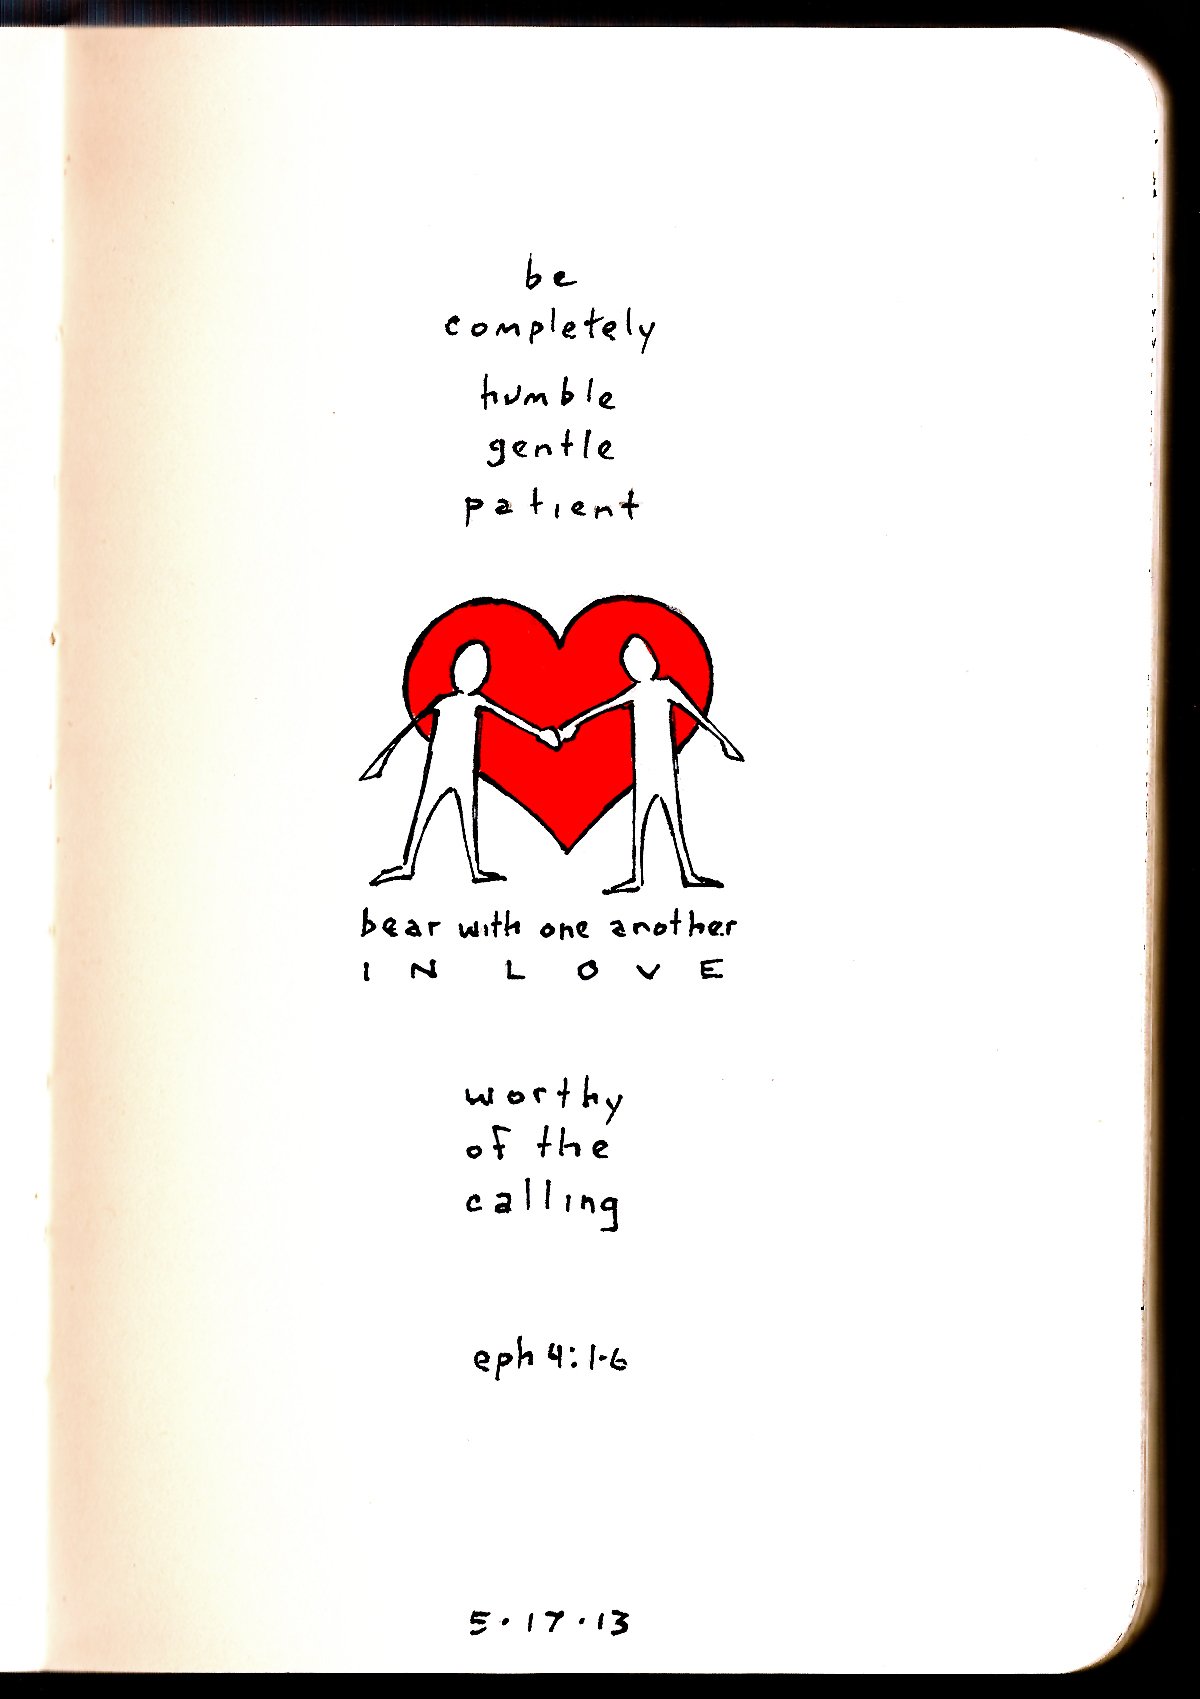 be
completely
humble
gentle
patient
bear with one another
IN LOVE
worthy
of the
calling
eph 4:1-6
5·17·13